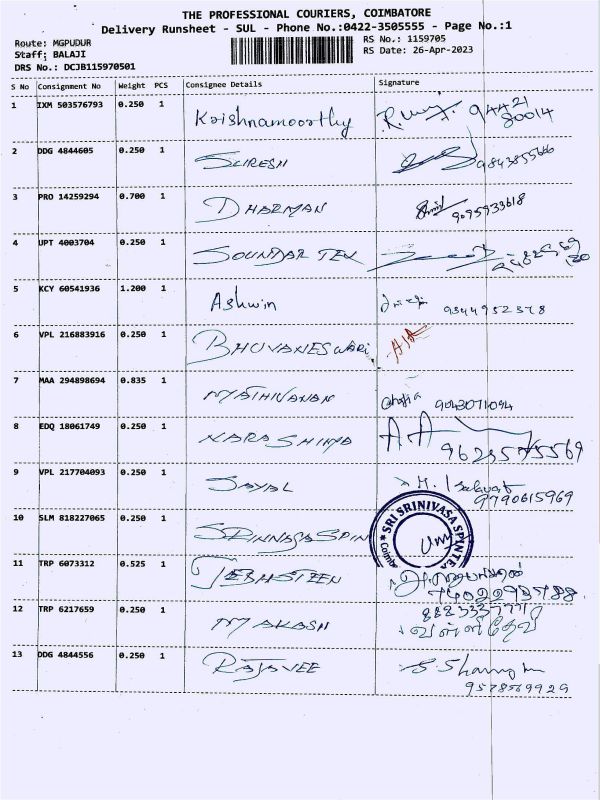 THE PROFESSIONAL COURIERS, COIMBATORE
Delivery Runsheet - SUL - Phone No.:0422-3505555 - Page No.:1
Route: MGPUDUR
RS No.: 1159705
Staff: BALAJI
RS Date: 26-Apr-2023
DRS No.: DCJB115970501
S No Consignment No Weight PCS Consignee Details Signature
1 IXM 503576793 0.250 1 Krishnamoorthy 94421
80014
2 DDG 4844605 0.250 1 SURESH
3 PRO 14259294 0.700 1 DHARMAN 9095933618
4 UPT 4003704 0.250 1 SOUNDAR TEX
5 KCY 60541936 1.200 1 Ashwin 9344952378
6 VPL 216883916 0.250 1 BHUVANESWARI
7 MAA 294898694 0.835 1 MATHIVANAN 9043071094
8 EDQ 18061749 0.250 1 NARASHIMA
9629575569
9 VPL 217704093 0.250 1 SAYAL
9790615969
10 SLM 818227065 0.250 1 SRINNASA SPIN SRI SRINIVASA SPINTEX
Coimb
11 TRP 6073312 0.525 1 JEBASTEEN
7402293788
12 TRP 6217659 0.250 1 M AKASH
வள்ளிதேவி
13 DDG 4844556 0.250 1 RAJAVEE
9578569929